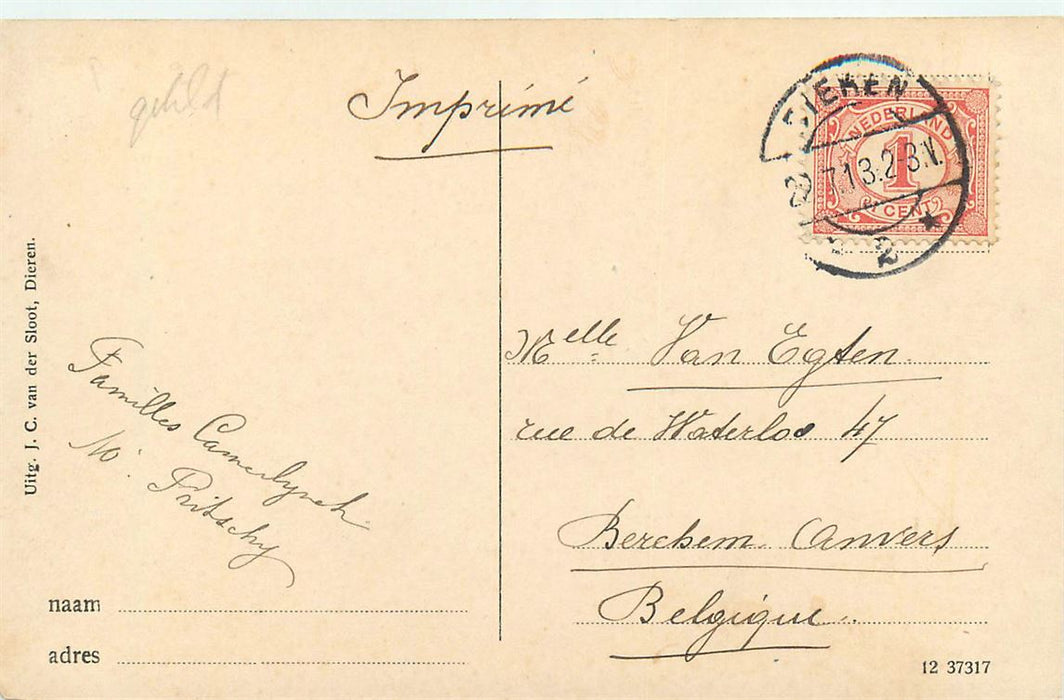 Imprimé
DIEREN
22.7.13.2-3.V.
2
NEDERLAND
1
CENT
Uitg. J. C. van der Sloot, Dieren.
Melle Van Egten.
rue de Waterloo 47
Berchem Anvers
Belgique
Familles Camerlynck
M. Pritschy
naam
adres
12 37317